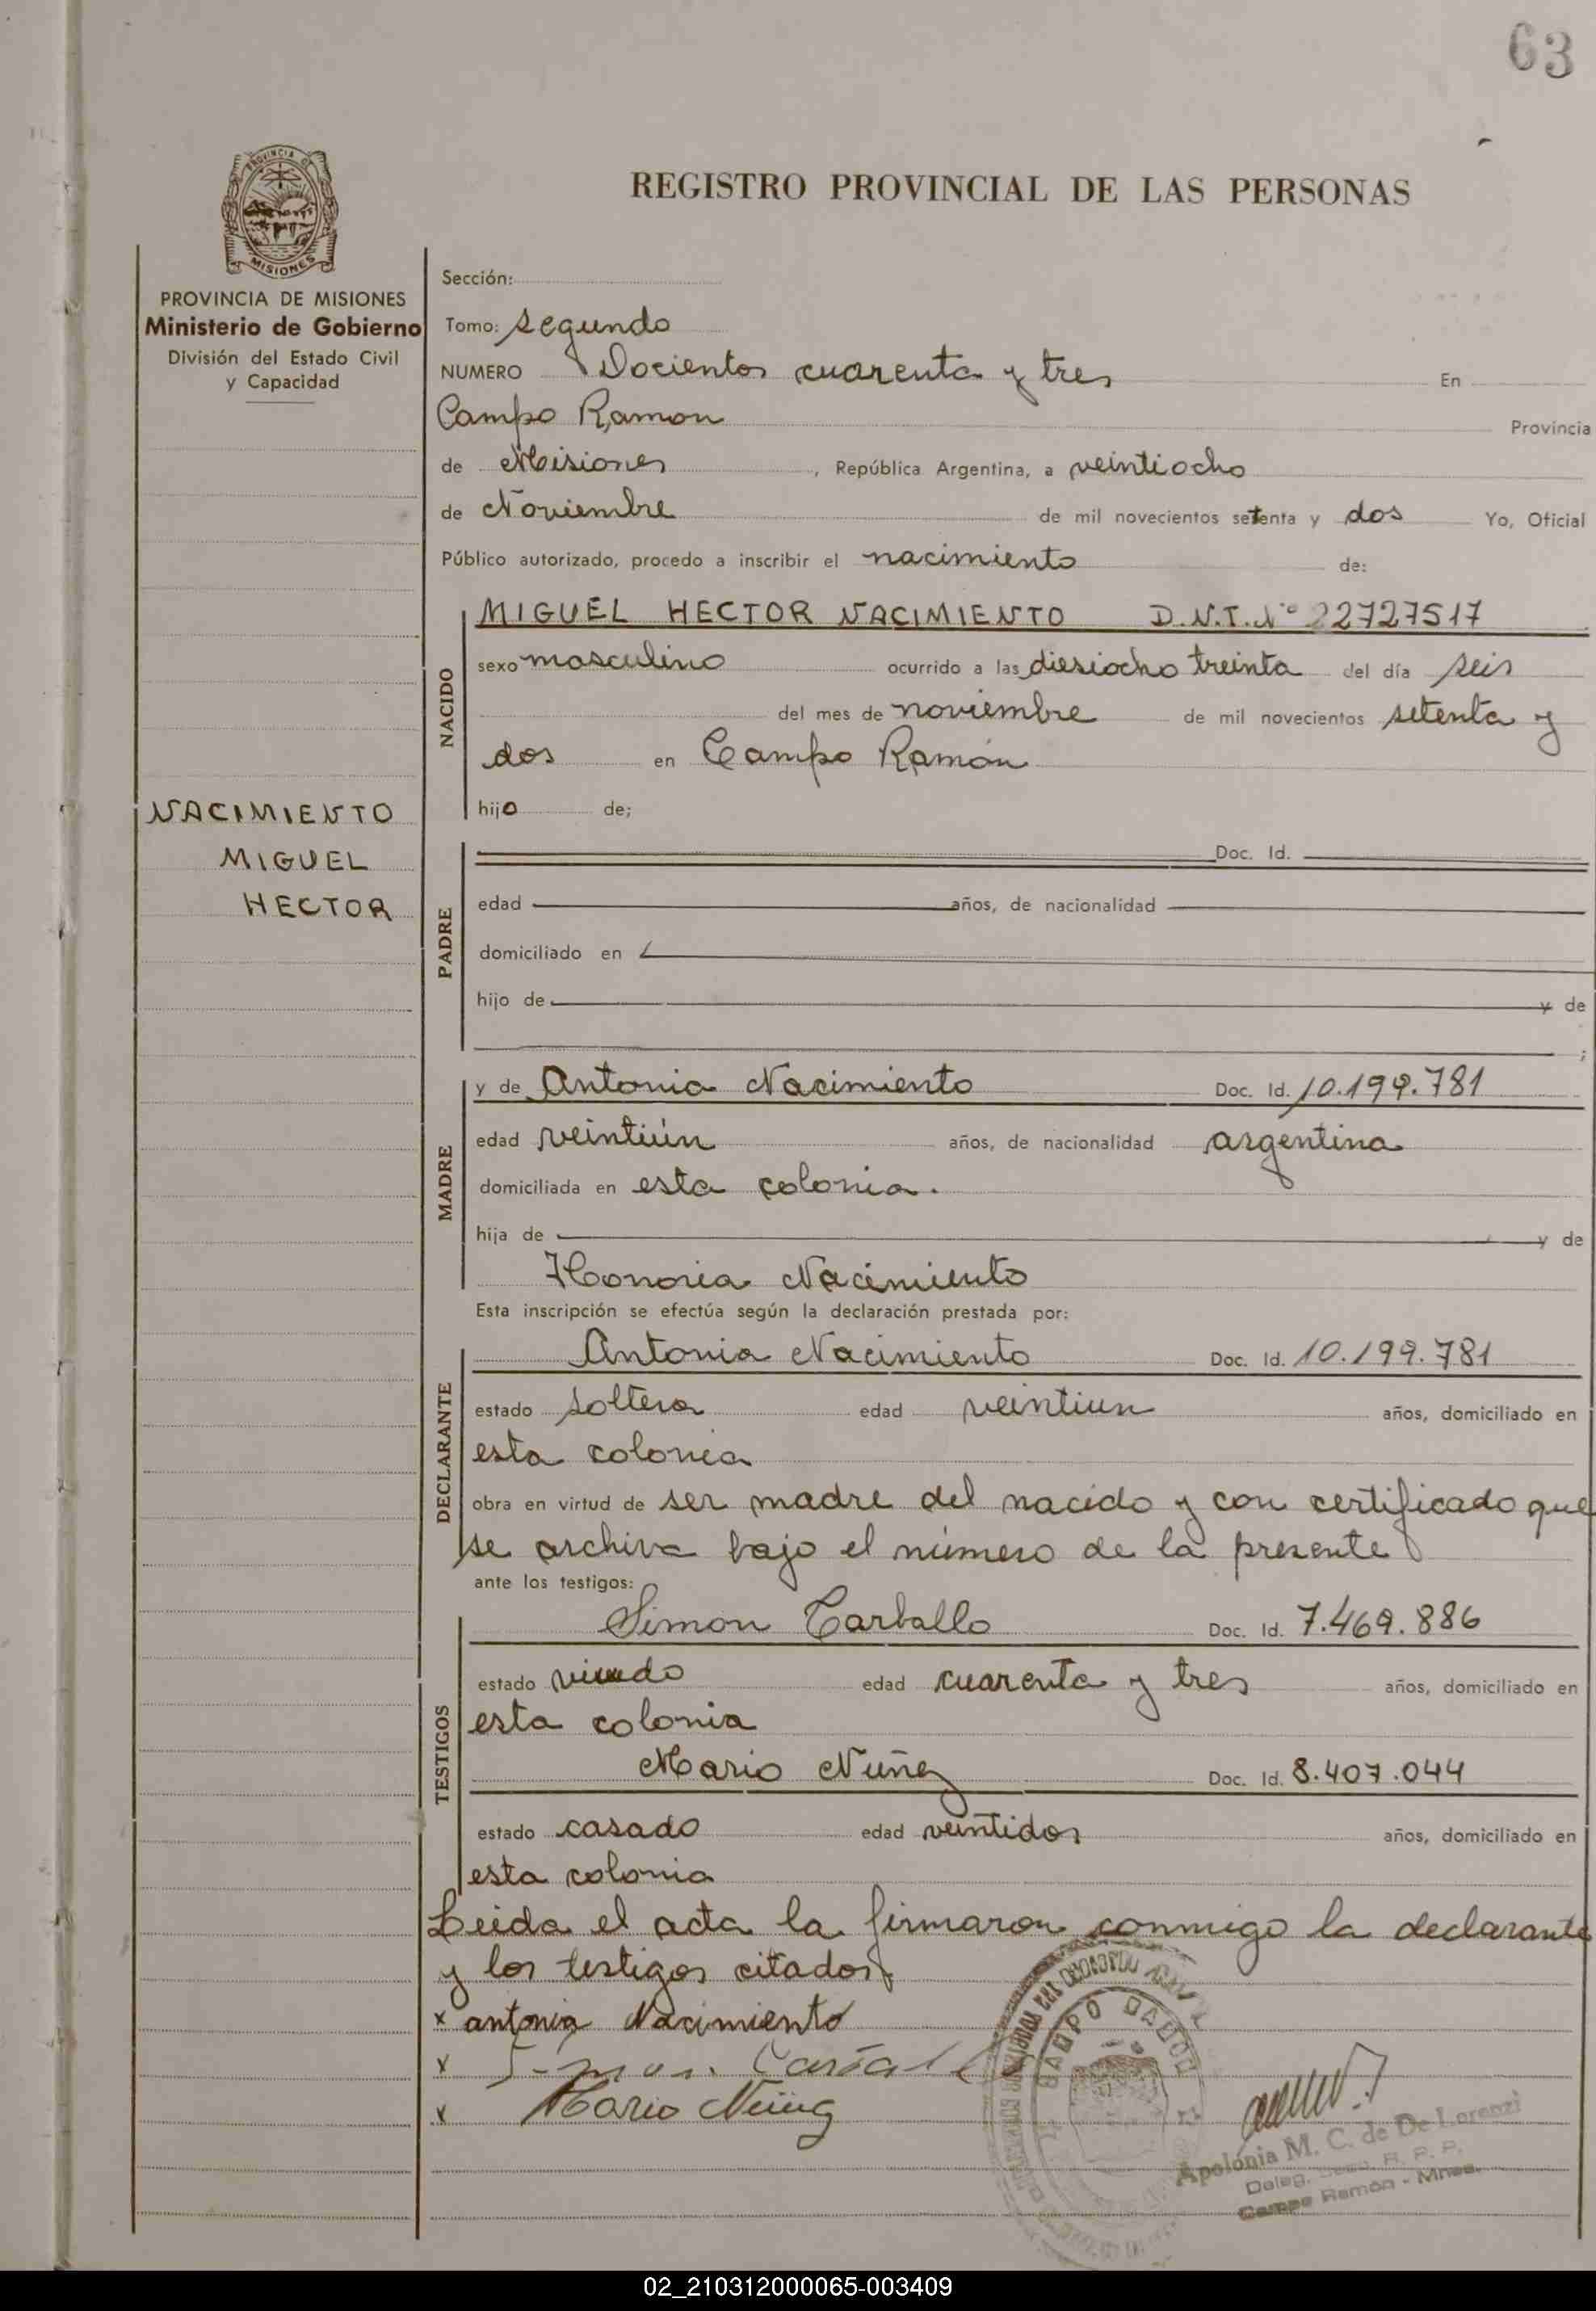 63
PROVINCIA DE
MISIONES
REGISTRO PROVINCIAL DE LAS PERSONAS
PROVINCIA DE MISIONES
Ministerio de Gobierno
División del Estado Civil
y Capacidad
Sección:
Tomo: segundo
NUMERO Docientos cuarenta y tres En
Campo Ramon Provincia
de Misiones, República Argentina, a veintiocho
de Noviembre de mil novecientos setenta y dos Yo, Oficial
Público autorizado, procedo a inscribir el nacimiento de:
NACIDO
MIGUEL HECTOR NACIMIENTO D.N.I. Nº 22727517
sexo masculino ocurrido a las diesiocho treinta del día seis
del mes de noviembre de mil novecientos setenta y
dos en Campo Ramón
hijo de;
NACIMIENTO
MIGUEL
HECTOR
PADRE
Doc. Id.
edad años, de nacionalidad
domiciliado en
hijo de y de
;
MADRE
y de Antonia Nacimiento Doc. Id. 10.199.781
edad veintiún años, de nacionalidad argentina
domiciliada en esta colonia.
hija de y de
Honoria Nacimiento
Esta inscripción se efectúa según la declaración prestada por:
DECLARANTE
Antonia Nacimiento Doc. Id. 10.199.781
estado soltera edad veintiun años, domiciliado en
esta colonia
obra en virtud de ser madre del nacido y con certificado que
se archiva bajo el número de la presente
ante los testigos:
TESTIGOS
Simon Carballo Doc. Id. 7.469.886
estado viudo edad cuarenta y tres años, domiciliado en
esta colonia
Mario Nuñez Doc. Id. 8.407.044
estado casado edad veintidos años, domiciliado en
esta colonia
Leida el acta la firmaron conmigo la declarante
y los testigos citados
x antonia Nacimiento
x Simon Carball
x Mario Nuñez
CAMPO RAMON
Apolónia M. C. de De Lorenzi
Deleg. R. P. P.
Campo Ramón - Mnes.
02_210312000065-003409